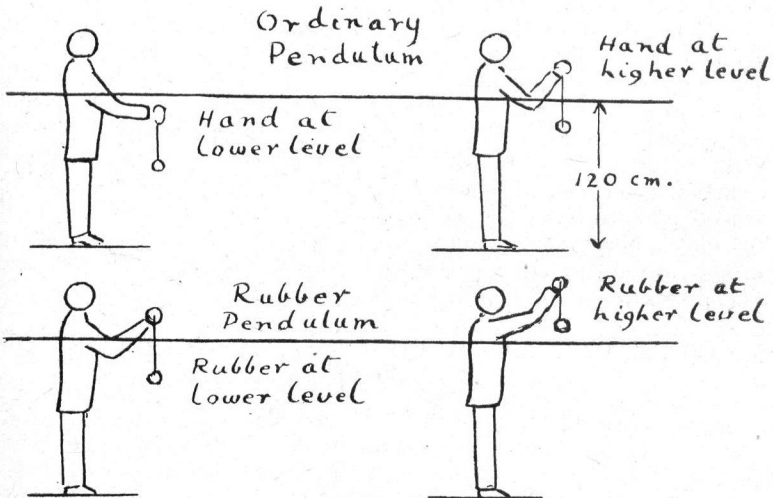 Ordinary
Pendulum
Hand at
higher level
Hand at
Lower level
120 cm.
Rubber
Pendulum
Rubber at
higher level
Rubber at
Lower level